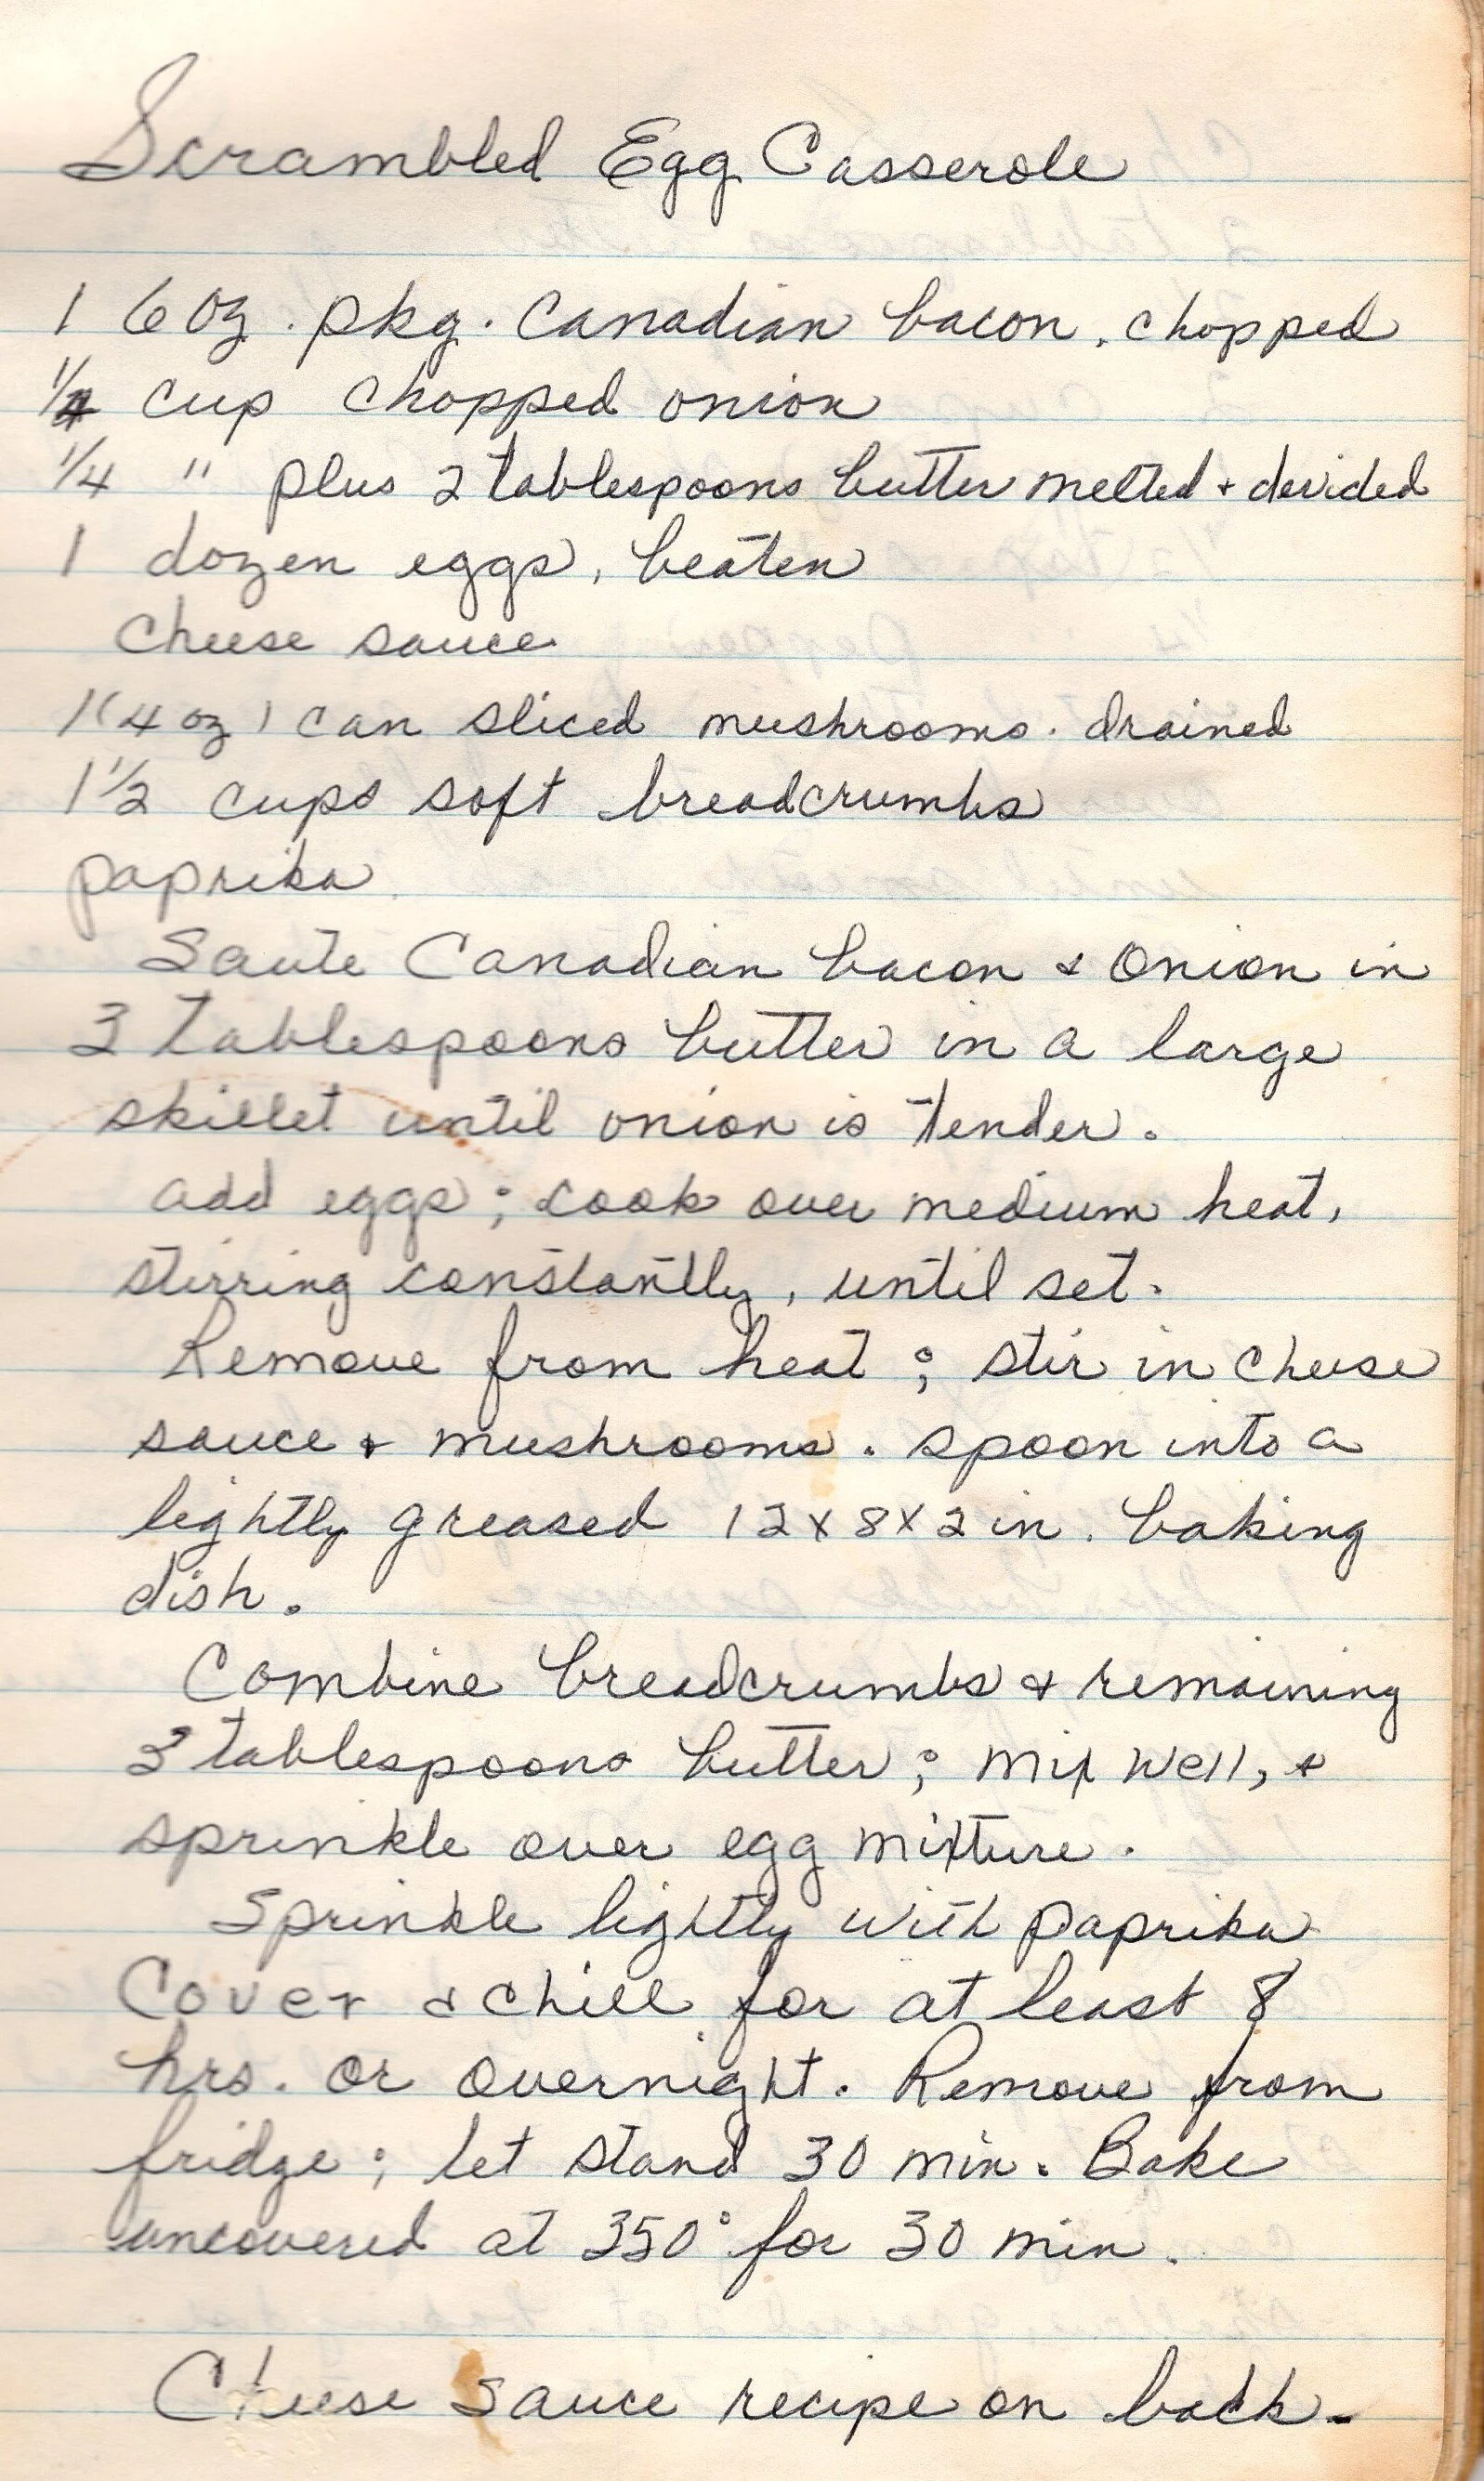 Scrambled Egg Casserole
1 6 oz. pkg. Canadian bacon, chopped
1/4 cup chopped onion
1/4 " plus 2 tablespoons butter melted + devided
1 dozen eggs, beaten
Cheese sauce
1 (4 oz) can sliced mushrooms. drained
1 1/2 cups soft breadcrumbs
paprika
Saute Canadian bacon & Onion in
3 Tablespoons butter in a large
skillet until onion is tender.
add eggs; cook over medium heat,
stirring constantly, until set.
Remove from heat; stir in cheese
sauce + mushrooms. spoon into a
lightly greased 12x8x2 in. baking
dish.
Combine breadcrumbs & remaining
3 tablespoons butter; mix well, &
sprinkle over egg mixture.
Sprinkle lightly with paprika
Cover & chill for at least 8
hrs. or overnight. Remove from
fridge; let stand 30 min. Bake
uncovered at 350° for 30 min.
Cheese sauce recipe on back-